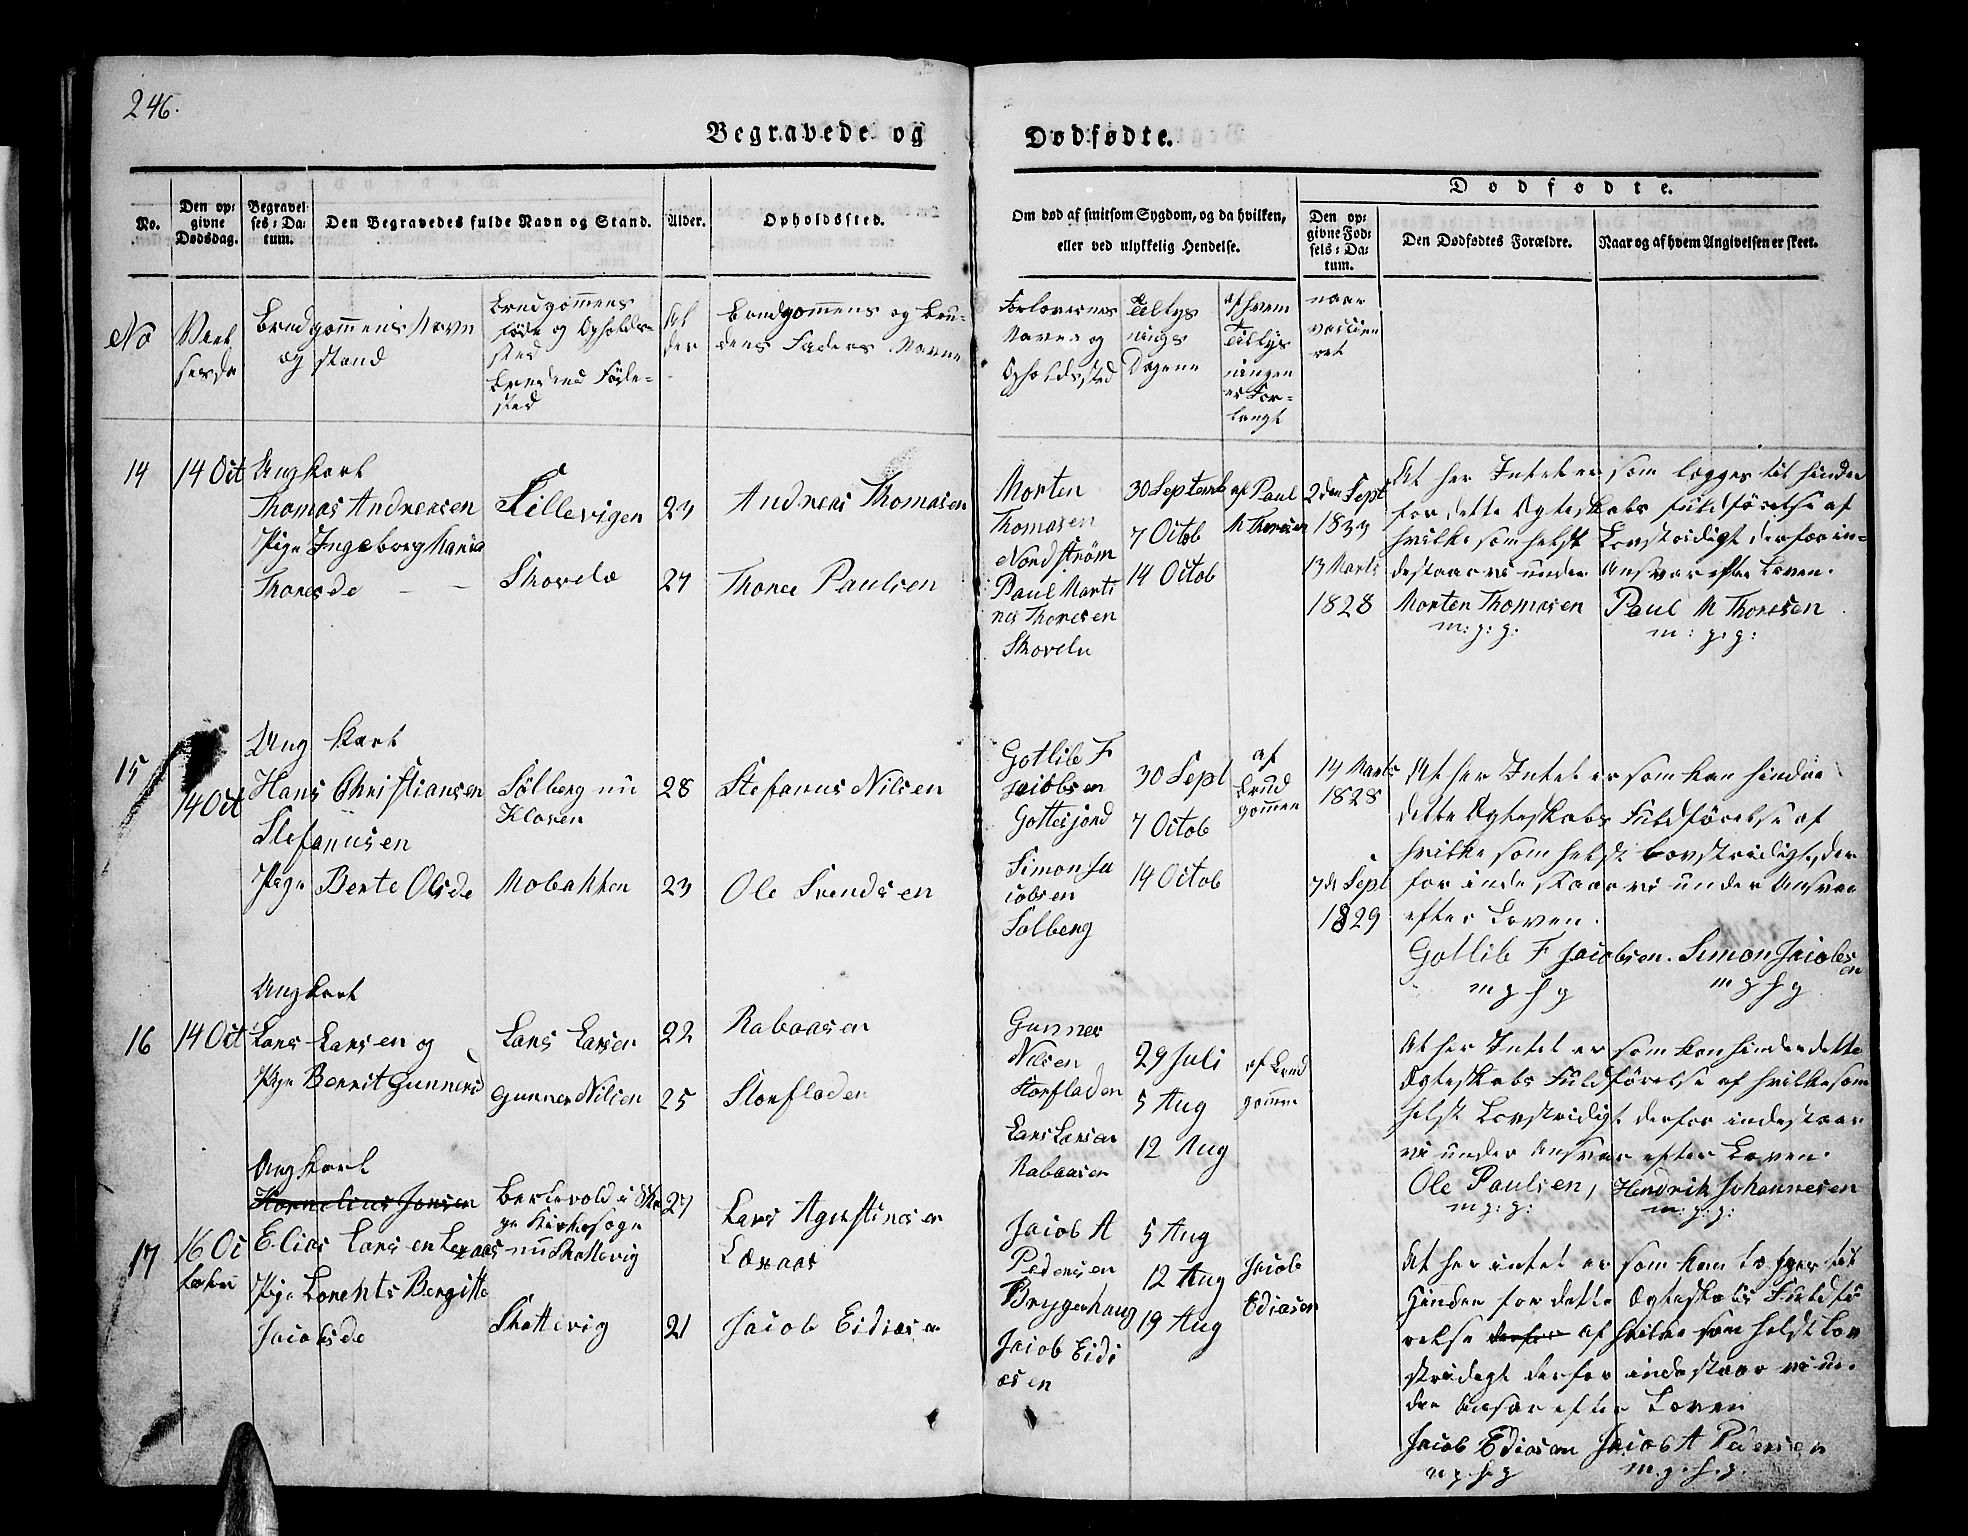 246.
Begravede og Dødfødte.
No.
Den op-
givne
Dødsdag.
Begravel-
ses-Da-
tum.
Den Begravedes fulde Navn og Stand.
Alder.
Opholdssted.
Om død af smitsom Sygdom, og da hvilken,
eller ved ulykkelig Hendelse.
Dødfødte.
Den op-
givne Fød-
sels-Da-
tum.
Den Dødfødtes Forældre.
Naar og af hvem Angivelsen er skeet.
No
Brudgommens Navn
og stand
Brudgommens
Føde og Opholds-
sted
Brudens Føde-
sted
Al
der
Brudgommens og Bru-
dens Faders Navne
Forlovernes
Navne og
Opholdssted
Tillys
nings
Dagene
af hvem
Tillys
ningen
er For-
langt
naar
vaccine
ret
14
14 Oct
Ungkarl
Thomas Andreasen
Pige Ingeborg Maria
Thoresde
Lillevigen
Skorelø
23
27
Andreas Thomasen
Thore Paulsen
Morten
Thomasen
Nordstrøm
Paul Marti
nes Thoresen
Skorelø
30 Septemb
7 Octob
14 Octob
af Paul
M Thoresen
2den Sept
1833
13 Marts
1828
At her Intet er som lægges til hinder
for dette Egteskabs fuldførelse af
hvilkesomhelst Lovstridigt derfor in-
destaar vi under Ansvar efter Loven.
Morten Thomasen Paul M Thoresen
m: p: g: m: p: g:
15
14 Oct
Ung karl
Hans Christiansen
Stefanusen
Pige Berte Olsde
Solberg nu
Klosen
Mobakken
28
23
Stefanus Nilsen
Ole Svendsen
Gotlib F
Jacobsen
Simon Ja
cobsen
Solberg
30 Sept
7 Octob
14 Octob
af
Brud
gommen
14 Marts
1828
7de Sept
1829
At her Intet er som kan hindre
dette Egteskabs Fuldførelse af
hvilke som helst Lovstridighed der
for indestaar vi under Ansvar
efter Loven.
Gotlib F Jacobsen. Simon Jacobs
en
16
14 Oct
Ungkarl
Lars Larsen og
Pige Berrit Gunnersd
Lars Larsen
Gunner Nilsen
22
25
Rabaasen
Storfladen
Gunner
Nilsen
Storfladen
Lars Larsen
Rabaasen
29 Juli
5 Aug
12 Aug
af Brud
gomm
At her Intet er som kan hinder dette
Egteskabs Fuldførelse af hvilkesom
helst Lovstridigt derfor indestaar
vi under Ansvar efter Loven.
Ole Paulsen, Hendrik Johannesen
m: p: g: m: p: g:
17
16 Oc
Ungkarl
Elias Larsen Lexaas
Pige Lorentz Bergitte
Jacobsde
nu Skottevig
Skottevig
27
21
Lars Agustinesen
Læxaas
Jacob Eidiasen
Jacob A
Pedersen
Bryggehaug
Jacob Eidi
asen
5 Aug
12 Aug
19 Aug
Jacob
Ediasen
At her intet er som kan lægges til
Hinder for dette Egteskabs Fuldfø
relse af hvilke som helst Lov
stridigt derfor indestaar vi un-
der Ansvar efter Loven
Jacob Ediasen Jacob A Pedersen